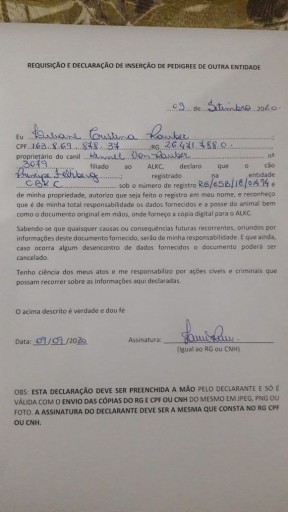 REQUISIÇÃO E DECLARAÇÃO DE INSERÇÃO DE PEDIGREE DE OUTRA ENTIDADE
09 de Setembro 2020
Eu Cristina
CPF 163.8.69. 848. 37 RG 26.471.788.0
proprietário do canil Kennel Von nº
3079 filiado ao ALKC, declaro que o cão
registrado na entidade
CBKC sob o número de registro e
de minha propriedade, autorizo que seja feito o registro em meu nome, e reconheço
que é de minha total responsabilidade os dados fornecidos e a posse do animal bem
como o documento original em mãos, onde forneço a cópia digital para o ALKC.
Sabendo-se que quaisquer causas ou consequências futuras recorrentes, oriundos por
informações deste documento fornecido, serão de minha responsabilidade. E que ainda,
caso ocorra algum desencontro de dados fornecidos o documento poderá ser
cancelado.
Tenho ciência dos meus atos e me responsabilizo por ações cíveis e criminais que
possam recorrer sobre as informações aqui declaradas.
O acima descrito é verdade e dou fé
Data: 09/09/2020 Assinatura:
(Igual ao RG ou CNH)
OBS: ESTA DECLARAÇÃO DEVE SER PREENCHIDA A MÃO PELO DECLARANTE E SÓ É
VÁLIDA COM O ENVIO DAS CÓPIAS DO RG E CPF OU CNH DO MESMO EM JPEG, PNG OU
FOTO. A ASSINATURA DO DECLARANTE DEVE SER A MESMA QUE CONSTA NO RG CPF
OU CNH.